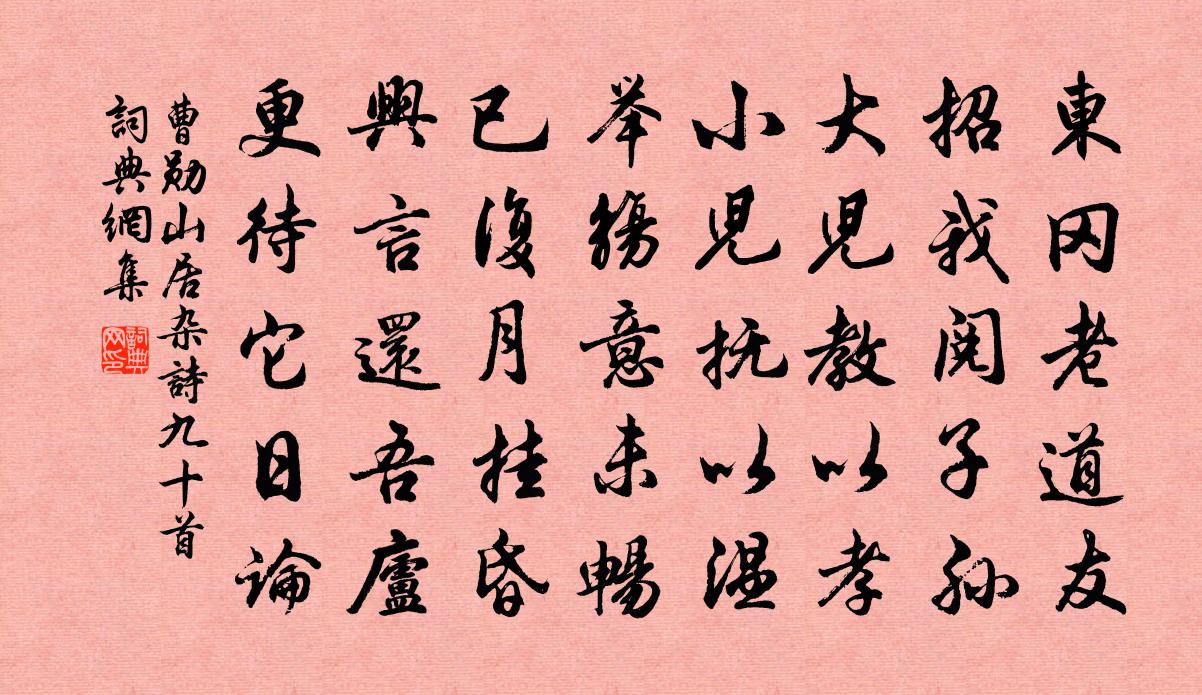 東冈老道友
招我阅子孙
大児教以孝
小児抚以温
举觞意未暢
已復月挂昏
興言還吾廬
更待它日論
曹勋山居杂詩九十首
詞典網集
詞典网印